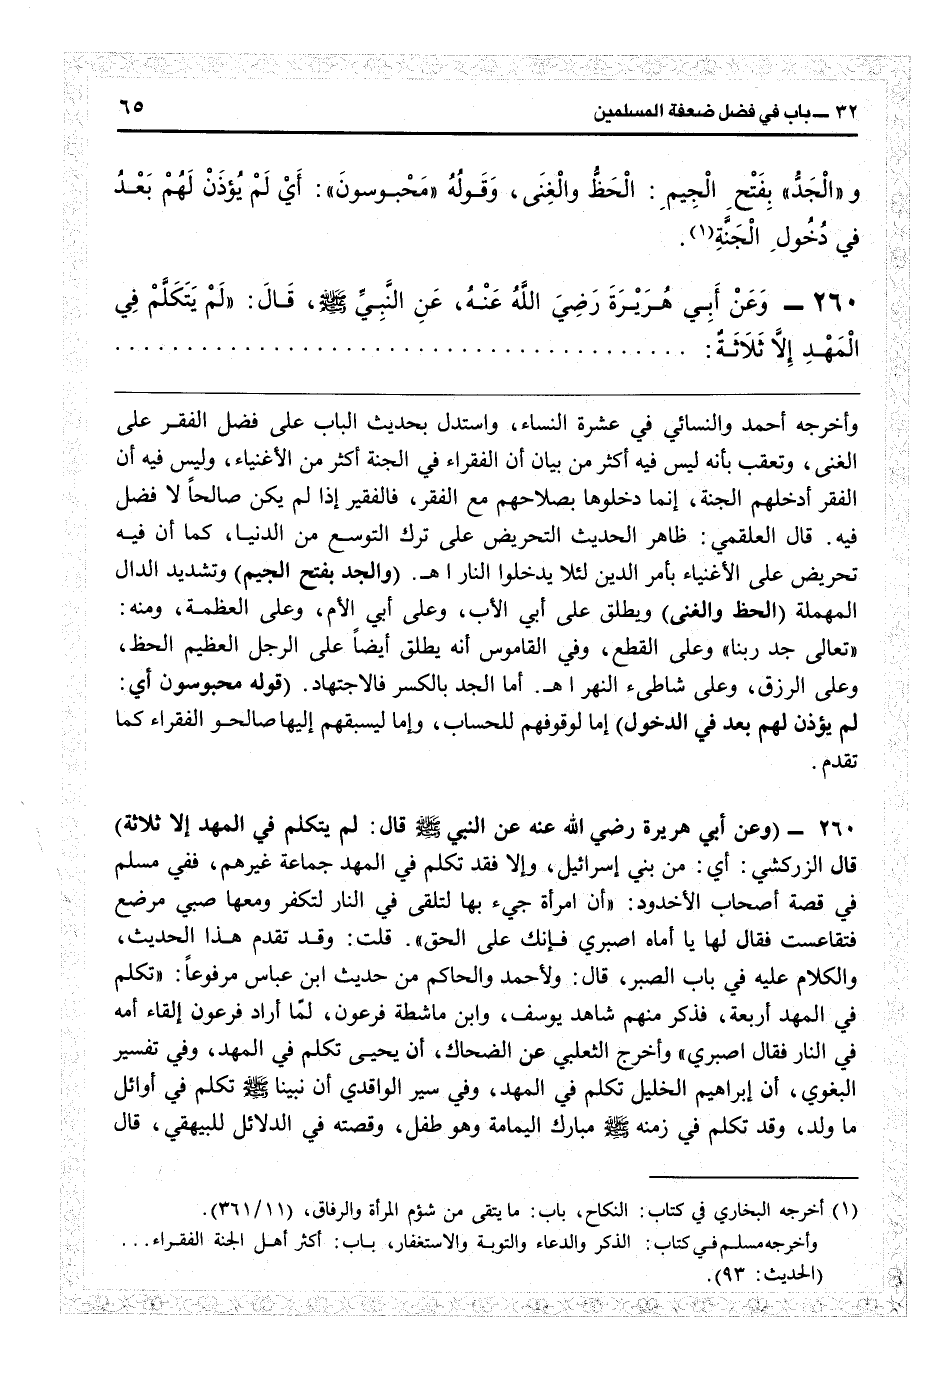 ٣٢ ــ باب في فضل ضعفة المسلمين
٦٥
و «الْجَدُّ» بِفَتْحِ الْجِيمِ: الْحَظُّ والْغِنَى، وَقَوْلُهُ «مَحْبُوسونَ»: أَيْ لَمْ يُؤذَنْ لَهُمْ بَعْدُ
في دُخُولِ الْجَنَّةِ(١).
٢٦٠ ــ وَعَنْ أَبِي هُرَيْرَةَ رَضِيَ اللَّهُ عَنْهُ، عَنِ النَّبِيِّ ﷺ، قَالَ: «لَمْ يَتَكَلَّمْ فِي
الْمَهْدِ إِلَّا ثَلَاثَةٌ: . . . . . . . . . . . . . . . . . . . . . . . . . . . . . . . . . . . . . . . .
وأخرجه أحمد والنسائي في عشرة النساء، واستدل بحديث الباب على فضل الفقر على
الغنى، وتعقب بأنه ليس فيه أكثر من بيان أن الفقراء في الجنة أكثر من الأغنياء، وليس فيه أن
الفقر أدخلهم الجنة، إنما دخلوها بصلاحهم مع الفقر، فالفقير إذا لم يكن صالحاً لا فضل
فيه. قال العلقمي: ظاهر الحديث التحريض على ترك التوسع من الدنيا، كما أن فيه
تحريض على الأغنياء بأمر الدين لئلا يدخلوا النار ا هـ. (والجد بفتح الجيم) وتشديد الدال
المهملة (الحظ والغنى) ويطلق على أبي الأب، وعلى أبي الأم، وعلى العظمة، ومنه:
«تعالى جد ربنا» وعلى القطع، وفي القاموس أنه يطلق أيضاً على الرجل العظيم الحظ،
وعلى الرزق، وعلى شاطىء النهر ا هـ. أما الجد بالكسر فالاجتهاد. (قوله محبوسون أي:
لم يؤذن لهم بعد في الدخول) إما لوقوفهم للحساب، وإما ليسبقهم إليها صالحو الفقراء كما
تقدم.
٢٦٠ ــ (وعن أبي هريرة رضي الله عنه عن النبي ﷺ قال: لم يتكلم في المهد إلا ثلاثة)
قال الزركشي: أي: من بني إسرائيل، وإلا فقد تكلم في المهد جماعة غيرهم، ففي مسلم
في قصة أصحاب الأخدود: «أن امرأة جيء بها لتلقى في النار لتكفر ومعها صبي مرضع
فتقاعست فقال لها يا أماه اصبري فإنك على الحق». قلت: وقد تقدم هذا الحديث،
والكلام عليه في باب الصبر، قال: ولأحمد والحاكم من حديث ابن عباس مرفوعاً: «تكلم
في المهد أربعة، فذكر منهم شاهد يوسف، وابن ماشطة فرعون، لمّا أراد فرعون إلقاء أمه
في النار فقال اصبري» وأخرج الثعلبي عن الضحاك، أن يحيى تكلم في المهد، وفي تفسير
البغوي، أن إبراهيم الخليل تكلم في المهد، وفي سير الواقدي أن نبينا ﷺ تكلم في أوائل
ما ولد، وقد تكلم في زمنه ﷺ مبارك اليمامة وهو طفل، وقصته في الدلائل للبيهقي، قال
(١) أخرجه البخاري في كتاب: النكاح، باب: ما يتقى من شؤم المرأة والرفاق، (٣٦١/١١).
وأخرجه مسلم في كتاب: الذكر والدعاء والتوبة والاستغفار، باب: أكثر أهل الجنة الفقراء. . .
(الحديث: ٩٣).